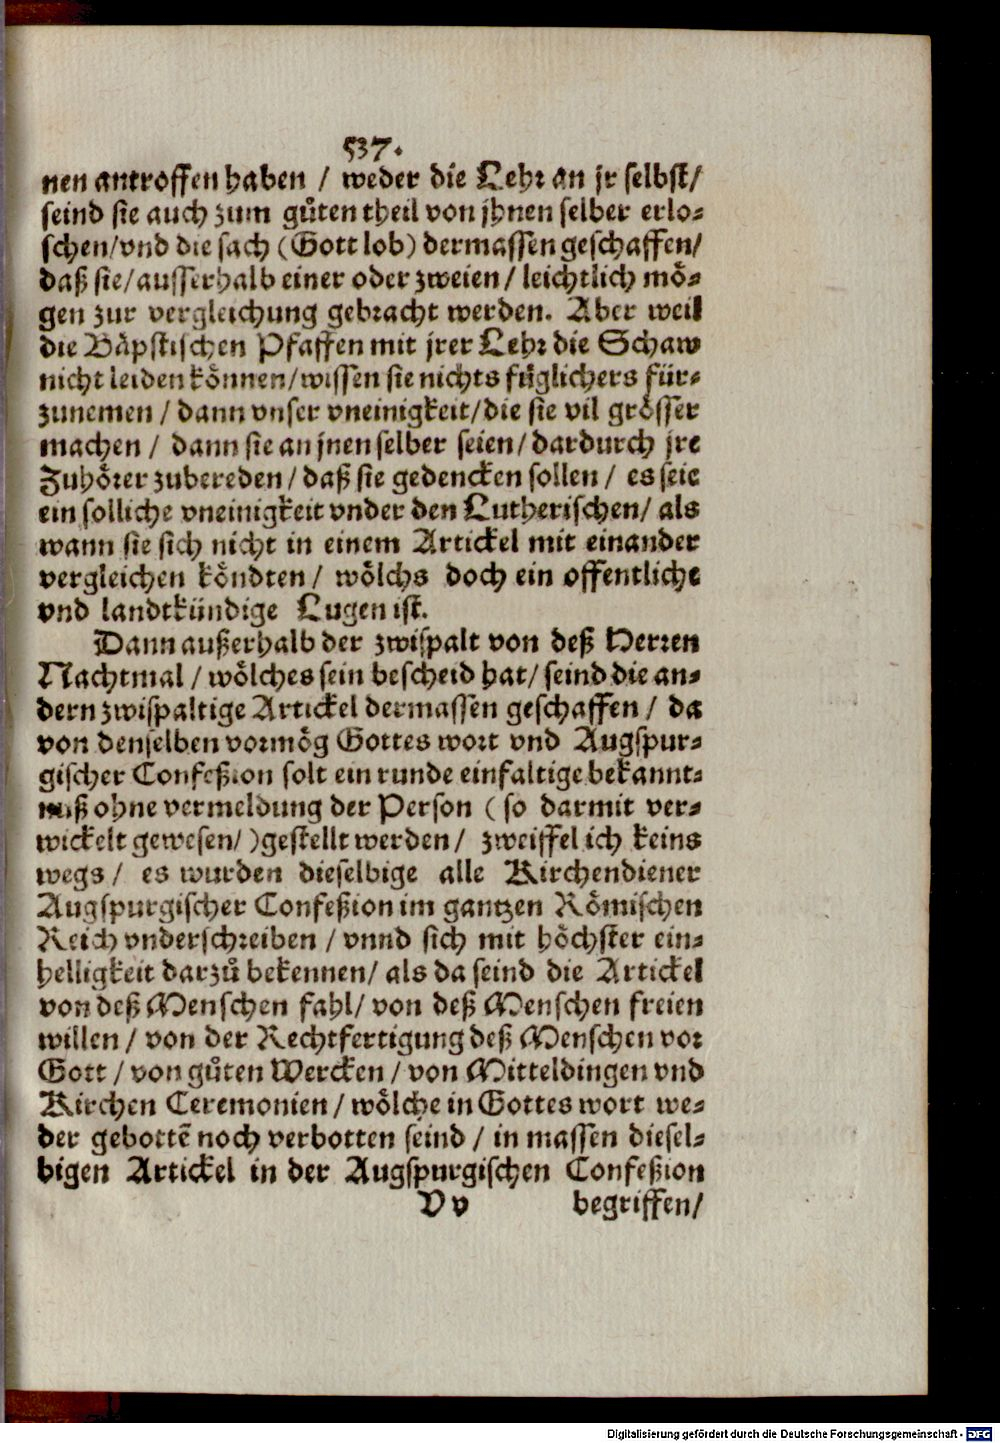 537.
nen antroffen haben / weder die Lehr an jr selbst/
seind sie auch zum gůten theil von jhnen selber erlo-
schen/vnd die sach (Gott lob) dermassen geschaffen/
daß sie/ausserhalb einer oder zweien/leichtlich mö-
gen zur vergleichung gebracht werden. Aber weil
die Bäpstischen Pfaffen mit jrer Lehr die Schaw
nicht leiden können/wissen sie nichts füglichers für-
zunemen/dann vnser vneinigkeit/die sie vil grösser
machen / dann sie an jnen selber seien/dardurch jre
Zuhörer zubereden/daß sie gedencken sollen / es seie
ein solliche vneinigkeit vnder den Lutherischen/ als
wann sie sich nicht in einem Artickel mit einander
vergleichen köndten / wölchs doch ein offentliche
vnd landtkündige Lugen ist.
Dann außerhalb der zwispalt von deß Herren
Nachtmal / wölches sein bescheid hat/ seind die an-
dern zwispaltige Artickel dermassen geschaffen / da
von denselben vormög Gottes wort vnd Augspur-
gischer Confeßion solt ein runde einfaltige bekannt-
nuß ohne vermeldung der Person (so darmit ver-
wickelt gewesen/)gestellt werden/ zweiffel ich keins
wegs / es wurden dieselbige alle Kirchendiener
Augspurgischer Confeßion im gantzen Römischen
Reich vnderschreiben / vnnd sich mit höchster ein-
helligkeit darzů bekennen/ als da seind die Artickel
von deß Menschen fahl/ von deß Menschen freien
willen / von der Rechtfertigung deß Menschen vor
Gott / von gůten Wercken / von Mitteldingen vnd
Kirchen Ceremonien / wölche in Gottes wort we-
der gebottē noch verbotten seind / in massen diesel-
bigen Artickel in der Augspurgischen Confeßion
Vv begriffen/
Digitalisierung gefördert durch die Deutsche Forschungsgemeinschaft - DFG